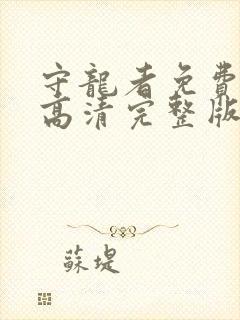 守龍者免費
高清完整版
蘇堤